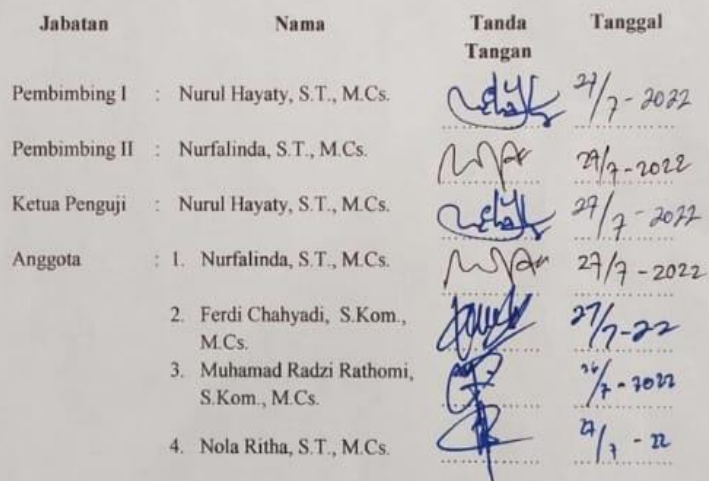 Jabatan Nama Tanda Tangan Tanggal
Pembimbing I : Nurul Hayaty, S.T., M.Cs. 27/7-2022
Pembimbing II : Nurfalinda, S.T., M.Cs. 27/7-2022
Ketua Penguji : Nurul Hayaty, S.T., M.Cs. 27/7-2022
Anggota : 1. Nurfalinda, S.T., M.Cs. 27/7-2022
2. Ferdi Chahyadi, S.Kom., 27/7-22
M.Cs.
3. Muhamad Radzi Rathomi, /7-2022
S.Kom., M.Cs.
4. Nola Ritha, S.T., M.Cs. 27/7 - 22